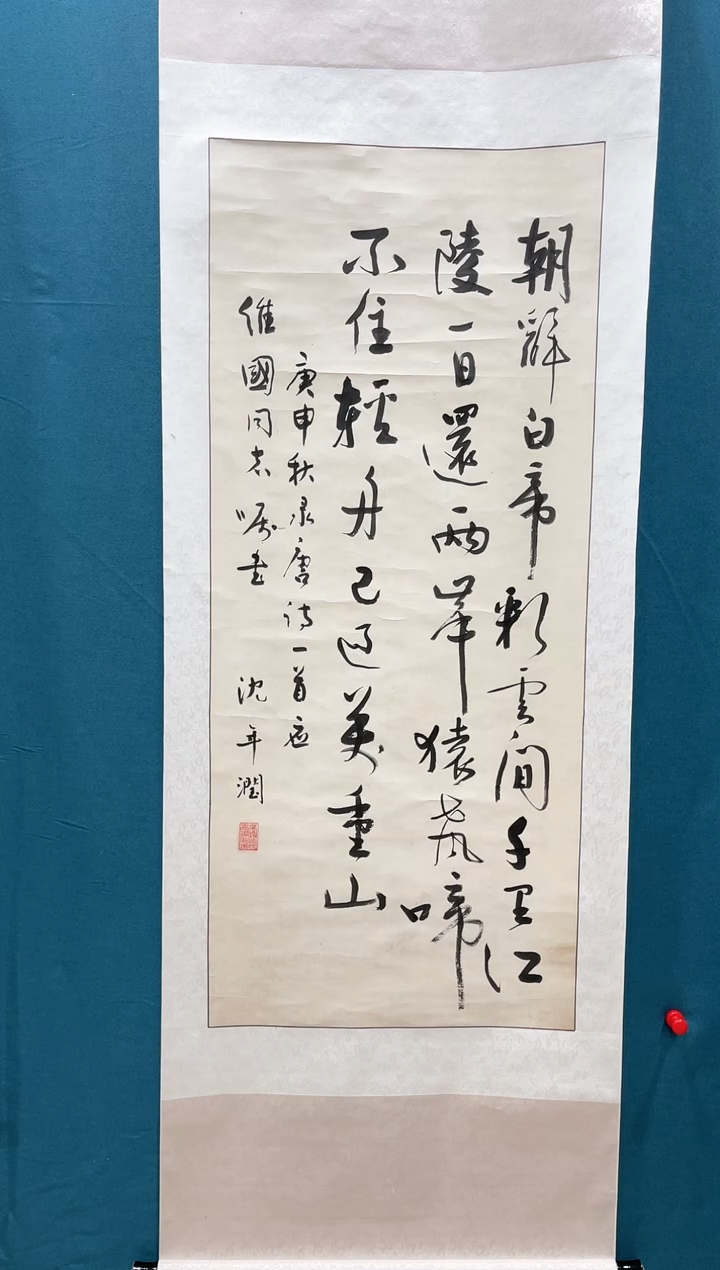 朝辭白帝彩雲間千里江
陵一日還兩岸猿聲啼
不住輕舟已過萬重山
庚申秋录唐詩一首应
維國同志嘱書 沈年潤